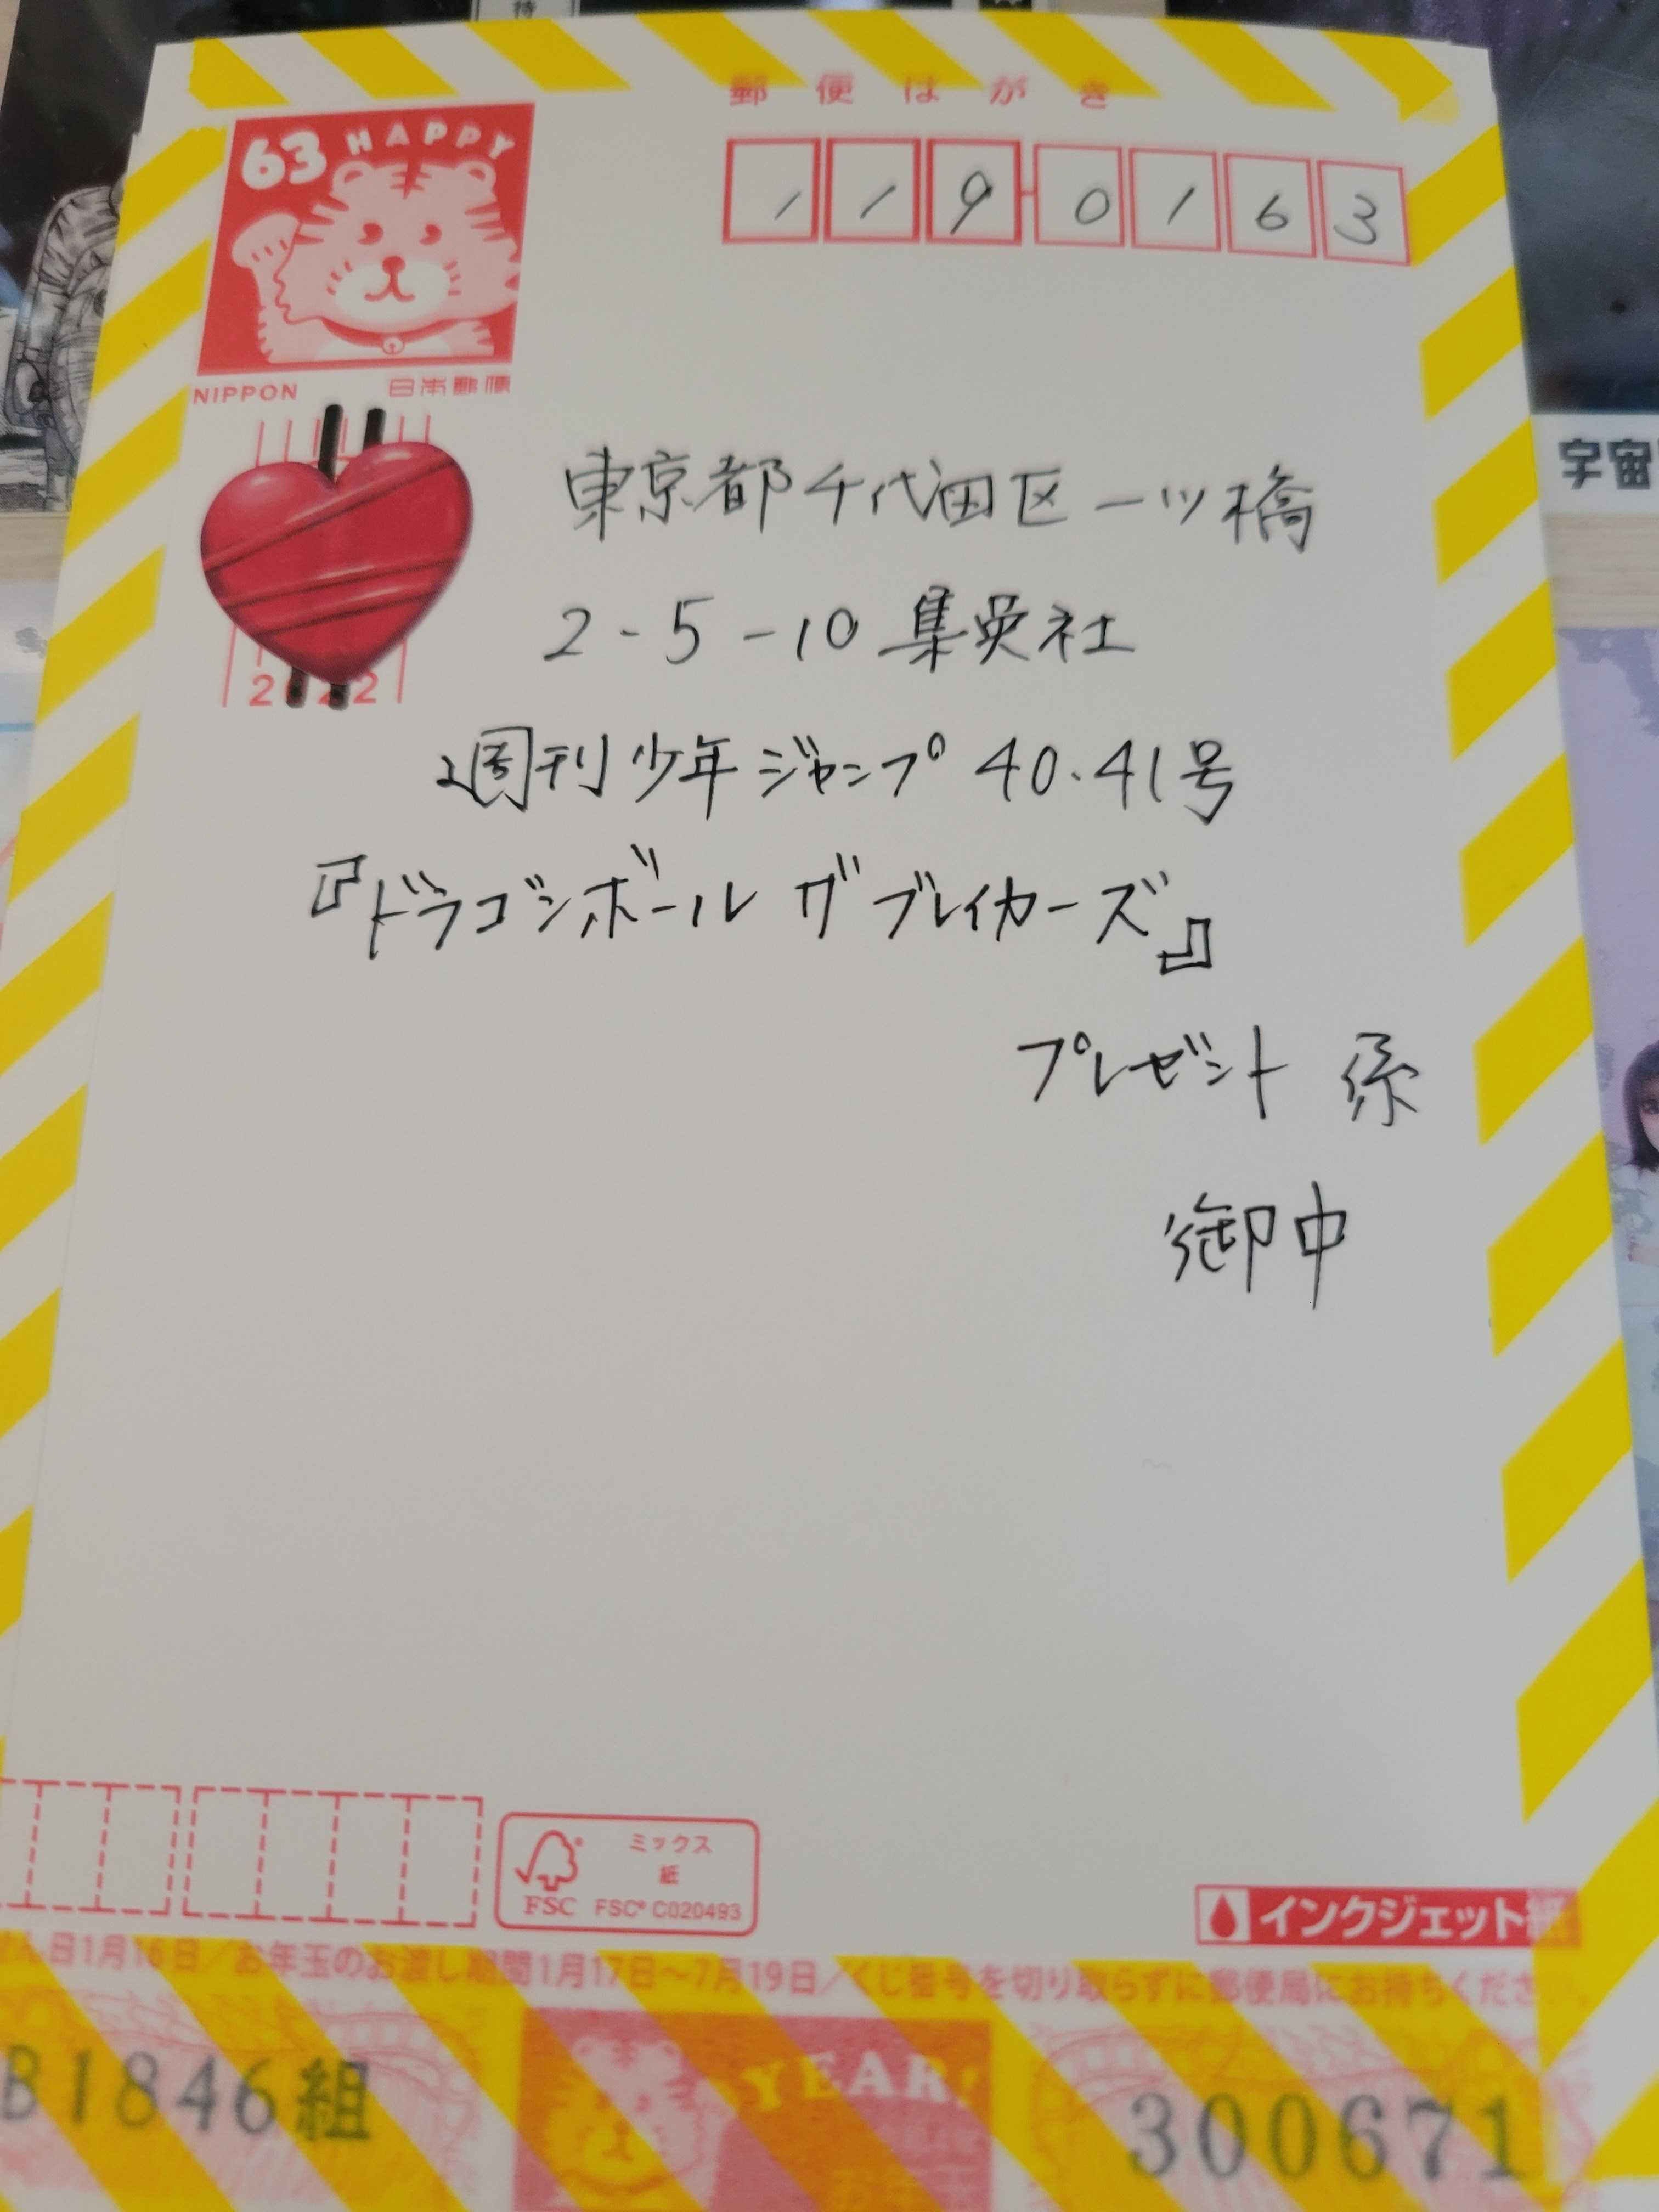 待
郵便はがき
63 HAPPY
119-0163
NIPPON 日本郵便
宇宙
東京都千代田区一ツ橋
2-5-10 集英社
2 22
週刊少年ジャンプ 40.41号
『ドラゴンボール ザ ブレイカーズ』
プレゼント 係
御中
ミックス
紙
FSC FSC® C020493
インクジェット紙
ん日1月16日/お年玉のお渡し期間1月17日〜7月19日/くじ番号を切り取らずに郵便局にお持ちくださ
B1846組
YEAR!
300671